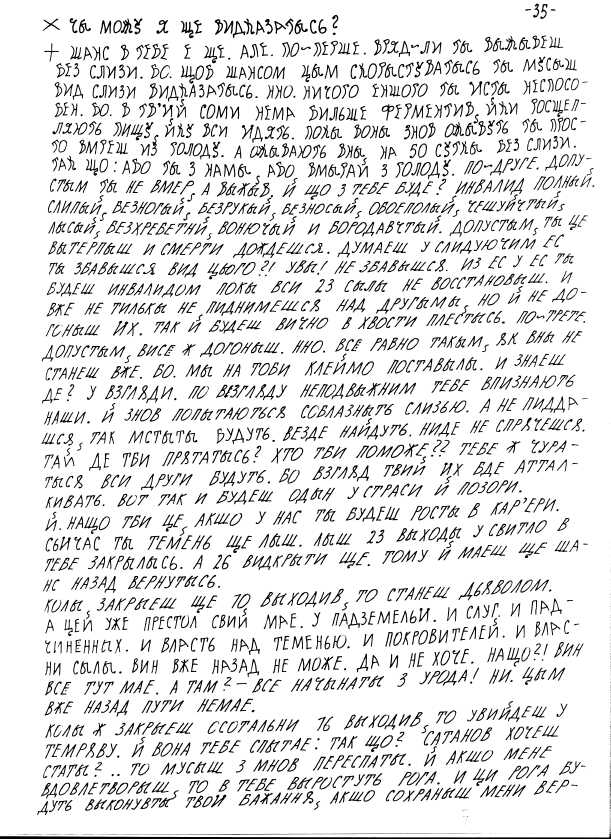 -35-
× ЧЫ МОЖУ Я ЩЕ ВИДКАЗАТЫСЬ?
+ ШАНС В ТЕБЕ Е ЩЕ. АЛЕ. ПО-ПЕРШЕ. ВРЯД-ЛИ ТЫ ВЫЖЫВЕШ
БЕЗ СЛИЗИ. БО. ЩОБ ШАНСОМ ЦЫМ СКОРЫСТУВАТЫСЬ ТЫ МУСЫШ
ВИД СЛИЗИ ВИДКАЗАТЫСЬ. ННО. НИЧОГО ЕНШОГО ТЫ ИСТЫ НЕСПОСО-
БЕН. БО. В ТВИЙ СОМИ НЕМА БИЛЬШЕ ФЕРМЕНТИВ, ЙКИ РОСЩЕП-
ЛЯЮТЬ ПИЩУ, ЙКУ ВСИ ИДЯТЬ. ПОКЫ ВОНЫ ЗНОВ ОЖЫВУТЬ ТЫ ПРОС-
ТО ВМРЕШ ИЗ ГОЛОДУ. А ОЖЫВАЮТЬ ВНЫ НА 50 СУТКЫ БЕЗ СЛИЗИ.
ТАК ЩО: АБО ТЫ З НАМЫ, АБО ВМЫРАЙ З ГОЛОДУ. ПО-ДРУГЕ. ДОПУ-
СТЫМ ТЫ НЕ ВМЕР, А ВЫЖЫВ, Й ЩО З ТЕБЕ БУДЕ? ИНВАЛИД ПОЛНЫЙ.
СЛИПЫЙ, БЕЗНОГЫЙ, БЕЗРУКЫЙ, БЕЗНОСЫЙ, ОБОЕПОЛЫЙ, ЧЕШУЙЧТЫЙ,
ЛЫСЫЙ, БЕЗХРЕБЕТНИЙ, ВОНЮЧЫЙ И БОРОДАВЧТЫЙ. ДОПУСТЫМ, ТЫ ЦЕ
ВЫТЕРПЫШ И СМЕРТИ ДОЖДЕШСЯ. ДУМАЕШ У СЛИДУЮЧИМ ЕС
ТЫ ЗБАВЫШСЯ ВИД ЦЬОГО?! УВЫ! НЕ ЗБАВЫШСЯ. ИЗ ЕС У ЕС ТЫ
БУДЕШ ИНВАЛИДОМ ПОКЫ ВСИ 23 СЫЛЫ НЕ ВОССТАНОВЫШ. И
ВЖЕ НЕ ТИЛЬКЫ НЕ ПИДНИМЕШСЯ НАД ДРУГЫМЫ, НО Й НЕ ДО-
ГОНЫШ ИХ. ТАК Й БУДЕШ ВИЧНО В ХВОСТИ ПЛЕСТЫСЬ. ПО-ТРЕТЕ.
ДОПУСТЫМ, ВИСЕ Ж ДОГОНЫШ. ННО. ВСЕ РАВНО ТАКЫМ, ЯК ВНЫ НЕ
СТАНЕШ ВЖЕ. БО. МЫ НА ТОБИ КЛЕЙМО ПОСТАВЫЛЫ. И ЗНАЕШ
ДЕ? У ВЗГЛЯДИ. ПО ВЗГЛЯДУ НЕПОДВЫЖНИМ ТЕБЕ ВПИЗНАЮТЬ
НАШИ. Й ЗНОВ ПОПЫТАЮТЬСЯ СОБЛАЗНЫТЬ СЛИЗЬЮ. А НЕ ПИДДА-
ШСЯ, ТАК МСТЫТЫ БУДУТЬ. ВЕЗДЕ НАЙДУТЬ. НИДЕ НЕ СПРЯЧЕШСЯ.
ТАЙ ДЕ ТБИ ПРЯТАТЫСЬ? ХТО ТБИ ПОМОЖЕ?? ТЕБЕ Ж ЧУРА-
ТЫСЯ ВСИ ДРУГИ БУДУТЬ. БО ВЗГЛЯД ТВИЙ ЙХ БДЕ АТТАЛ-
КИВАТЬ. ВОТ ТАК И БУДЕШ ОДЫН У СТРАСИ Й ПОЗОРИ.
Й. НАЩО ТБИ ЦЕ, АКШО У НАС ТЫ БУДЕШ РОСТЫ В КАР'ЕРИ.
СЬИЧАС ТЫ ТЕМЕНЬ ЩЕ ЛЫШ. ЛЫШ 23 ВЫХОДЫ У СВИТЛО В
ТЕБЕ ЗАКРЫЛЫСЬ. А 26 ВИДКРЫТИ ЩЕ. ТОМУ Й МАЕШ ЩЕ ША-
НС НАЗАД ВЕРНУТЫСЬ.
КОЛЫ, ЗАКРЫЕШ ЩЕ 10, ВЫХОДИВ, ТО СТАНЕШ ДЬЯВОЛОМ.
А ЦЕЙ УЖЕ ПРЕСТОЛ СВИЙ МАЕ. У ПАДЗЕМЕЛЬИ. И СЛУГ, И ПАД-
ЧИНЕННЫХ. И ВЛАСТЬ НАД ТЕМЕНЬЮ. И ПОКРОВИТЕЛЕЙ. И ВЛАС-
НИ СЫЛЫ. ВИН ВЖЕ НАЗАД НЕ МОЖЕ. ДА И НЕ ХОЧЕ. НАЩО?! ВИН
ВСЕ ТУТ МАЕ. А ТАМ? – ВСЕ НАЧЫНАТЫ З УРОДА! НИ. ЦЫМ
ВЖЕ НАЗАД ПУТИ НЕМАЕ.
КОЛЫ Ж ЗАКРЫЕШ ОСОТАЛЬНИ 16 ВЫХОДИВ, ТО УВИЙДЕШ У
ТЕМРЯВУ. Й ВОНА ТЕБЕ СПЫТАЕ: ТАК ЩО? САТАНОВ ХОЧЕШ
СТАТЫ?.. ТО МУСЫШ З МНОВ ПЕРЕСПАТЫ. Й АКШО МЕНЕ
ВДОВЛЕТВОРЫШ, ТО В ТЕБЕ ВЫРОСТУТЬ РОГА. И ЦИ РОГА БУ-
ДУТЬ ВЫКОНУВТЫ ТВОЙ БАЖАННЯ, АКШО СОХРАНЫШ МЕНИ ВЕР-